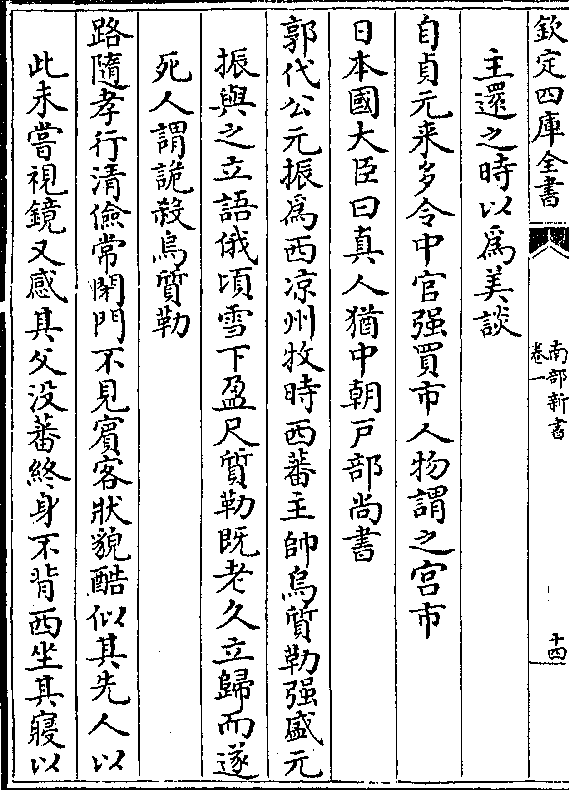 欽定四庫全書
南部新書
卷一
十四
主還之時以爲美談
自貞元来多令中官强買市人物謂之宫市
日本國大臣曰真人猶中朝戸部尚書
郭代公元振爲西凉州牧時西蕃主帥烏質勒强盛元
振與之立語俄頃雪下盈尺質勒既老久立歸而遂
死人謂詭殺烏質勒
路隨孝行清儉常閉門不見賓客狀貌酷似其先人以
此未嘗視鏡又感其父没蕃終身不背西坐其寢以